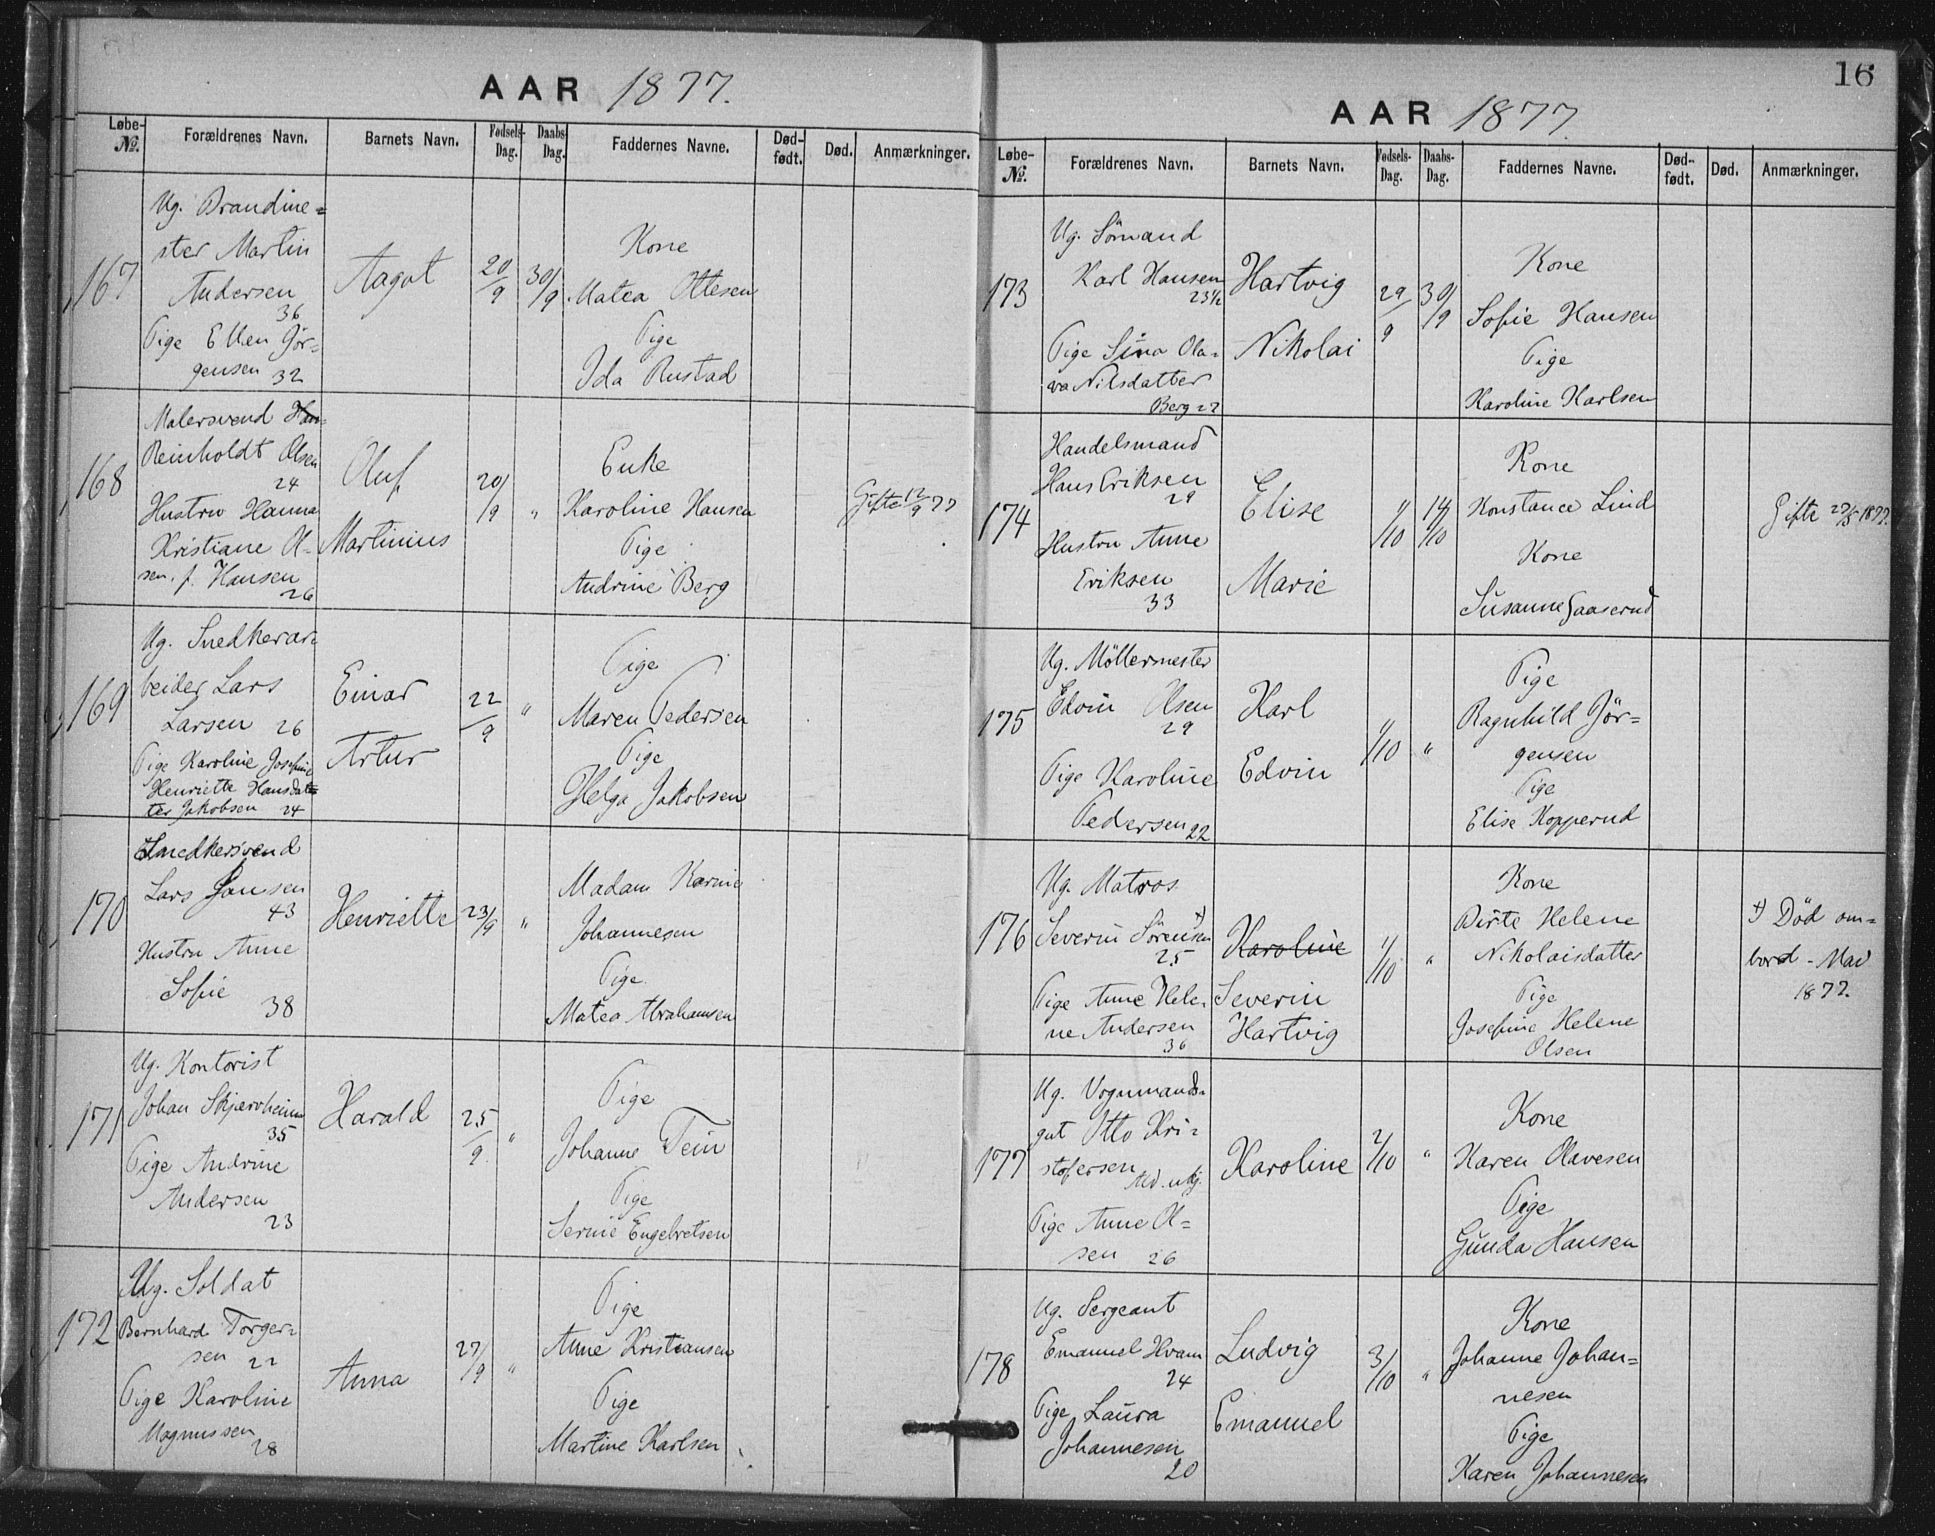 AAR 1877.
Løbe-
No.
Forældrenes Navn.
Barnets Navn.
Fødsels-
Dag.
Daabs-
Dag.
Faddernes Navne.
Død-
født.
Død.
Anmærkninger.
167
Ug. Brandme=
ster Martin
Andersen
36
Pige Ellen Jör=
gensen 32
Aagot
20/9
30/9
Kone
Matea Ottesen
Pige
Ida Rustad
168
Malersvend
Reinholdt Olsen
24
Hustru Hanna
Kristiane Ol-
sen, f. Hansen
26
Oluf
Martinius
20/9
"
Enke
Karoline Hansen
Pige
Andrine Berg
Gifte 12/9 77
169
Ug. Snedkerar=
beider Lars
Larsen 26
Pige Karoline Josefine
Henriette Hansdat=
ter Jakobsen 24
Einar
Artur
22/9
"
Pige
Maren Pedersen
Pige
Helga Jakobsen
170
Smedkersvend
Lars Jansen
43
Hustru Anne
Sofie
38
Henriette
23/9
"
Madam Karine
Johannesen
Pige
Matea Abrahamsen
171
Ug. Kontorist
Johan Skjærvheim
35
Pige Andrine
Andersen
23
Harald
25/9
"
Pige
Johanne Tein
Pige
Sernie Engebretsen
172
Ug. Soldat
Bernhard Torger=
sen 22
Pige Karoline
Magnussen
28
Anna
27/9
"
Pige
Anne Kristiansen
Pige
Martine Karlsen
16
AAR 1877.
Løbe-
No.
Forældrenes Navn.
Barnets Navn.
Fødsels-
Dag.
Daabs-
Dag.
Faddernes Navne.
Død-
født.
Død.
Anmærkninger.
173
Ug. Sömand
Karl Hansen
23½
Pige Sina Ola=
va Nilsdatter
Berg 27
Hartvig
Nikolai
29/9
30/9
Kone
Sofie Hansen
Pige
Karoline Karlsen
174
Handelsmand
Hans Eriksen
29
Hustru Anne
Eriksen
33
Elise
Marie
1/10
14/10
Kone
Konstance Lind
Kone
Susanne Saaserud
Gifte 27/5 1877.
175
Ug. Möllermester
Edvin Olsen
29
Pige Karoline
Pedersen 22
Karl
Edvin
1/10
"
Pige
Ragnhild Jör=
gensen
Pige
Elise Kopperud
176
Ug. Matros
Severin Sörensen +)
25
Pige Anne Hele-
ne Andersen
36
Karoline
Severin
Hartvig
1/10
"
Kone
Dirte Helene
Nikolaisdatter
Pige
Josefine Helene
Olsen
+) Död om=
bord - Mai
1877.
177
Ug. Vognmands-
gut Otto Kri=
stofersen
Ald. ubkj.
Pige Anne Ol=
sen 26
Karoline
2/10
"
Kone
Karen Olavesen
Pige
Gunda Hansen
178
Ug. Sergeant
Emanuel Hvam
24
Pige Laura
Johannesen
20
Ludvig
Emanuel
3/10
"
Kone
Johanne Johan=
nesen
Pige
Karen Johannesen